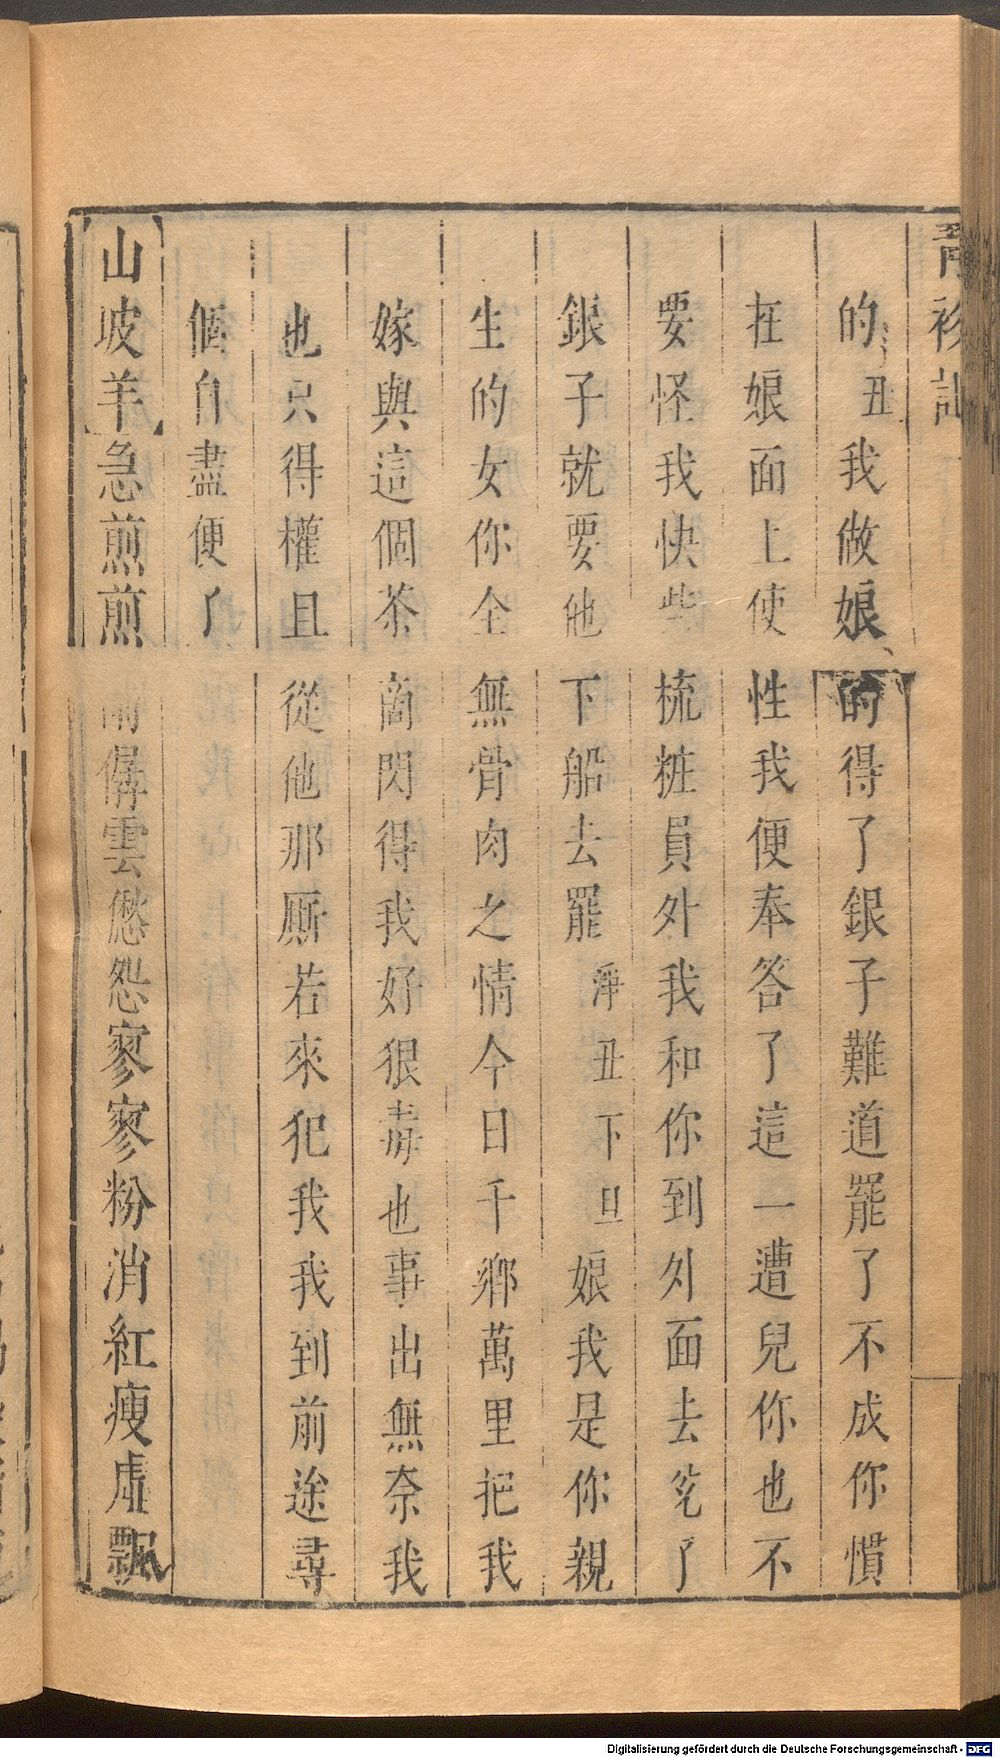 青衫記
的丑我做娘的得了銀子難道罷了不成你慣
在娘面上使性我便奉答了這一遭兒你也不
要怪我快些梳粧員外我和你到外面去等了
銀子就要他下船去罷淨丑下旦娘我是你親
生的女你全無骨肉之情今日千鄉萬里把我
嫁與這個茶商閃得我好狠毒也事出無奈我
也只得權且從他那厮若來犯我我到前途尋
個自盡便了
山坡羊急煎煎雨僝雲僽怨寥寥粉消紅瘦虛飄
Digitalisierung gefördert durch die Deutsche Forschungsgemeinschaft - DFG